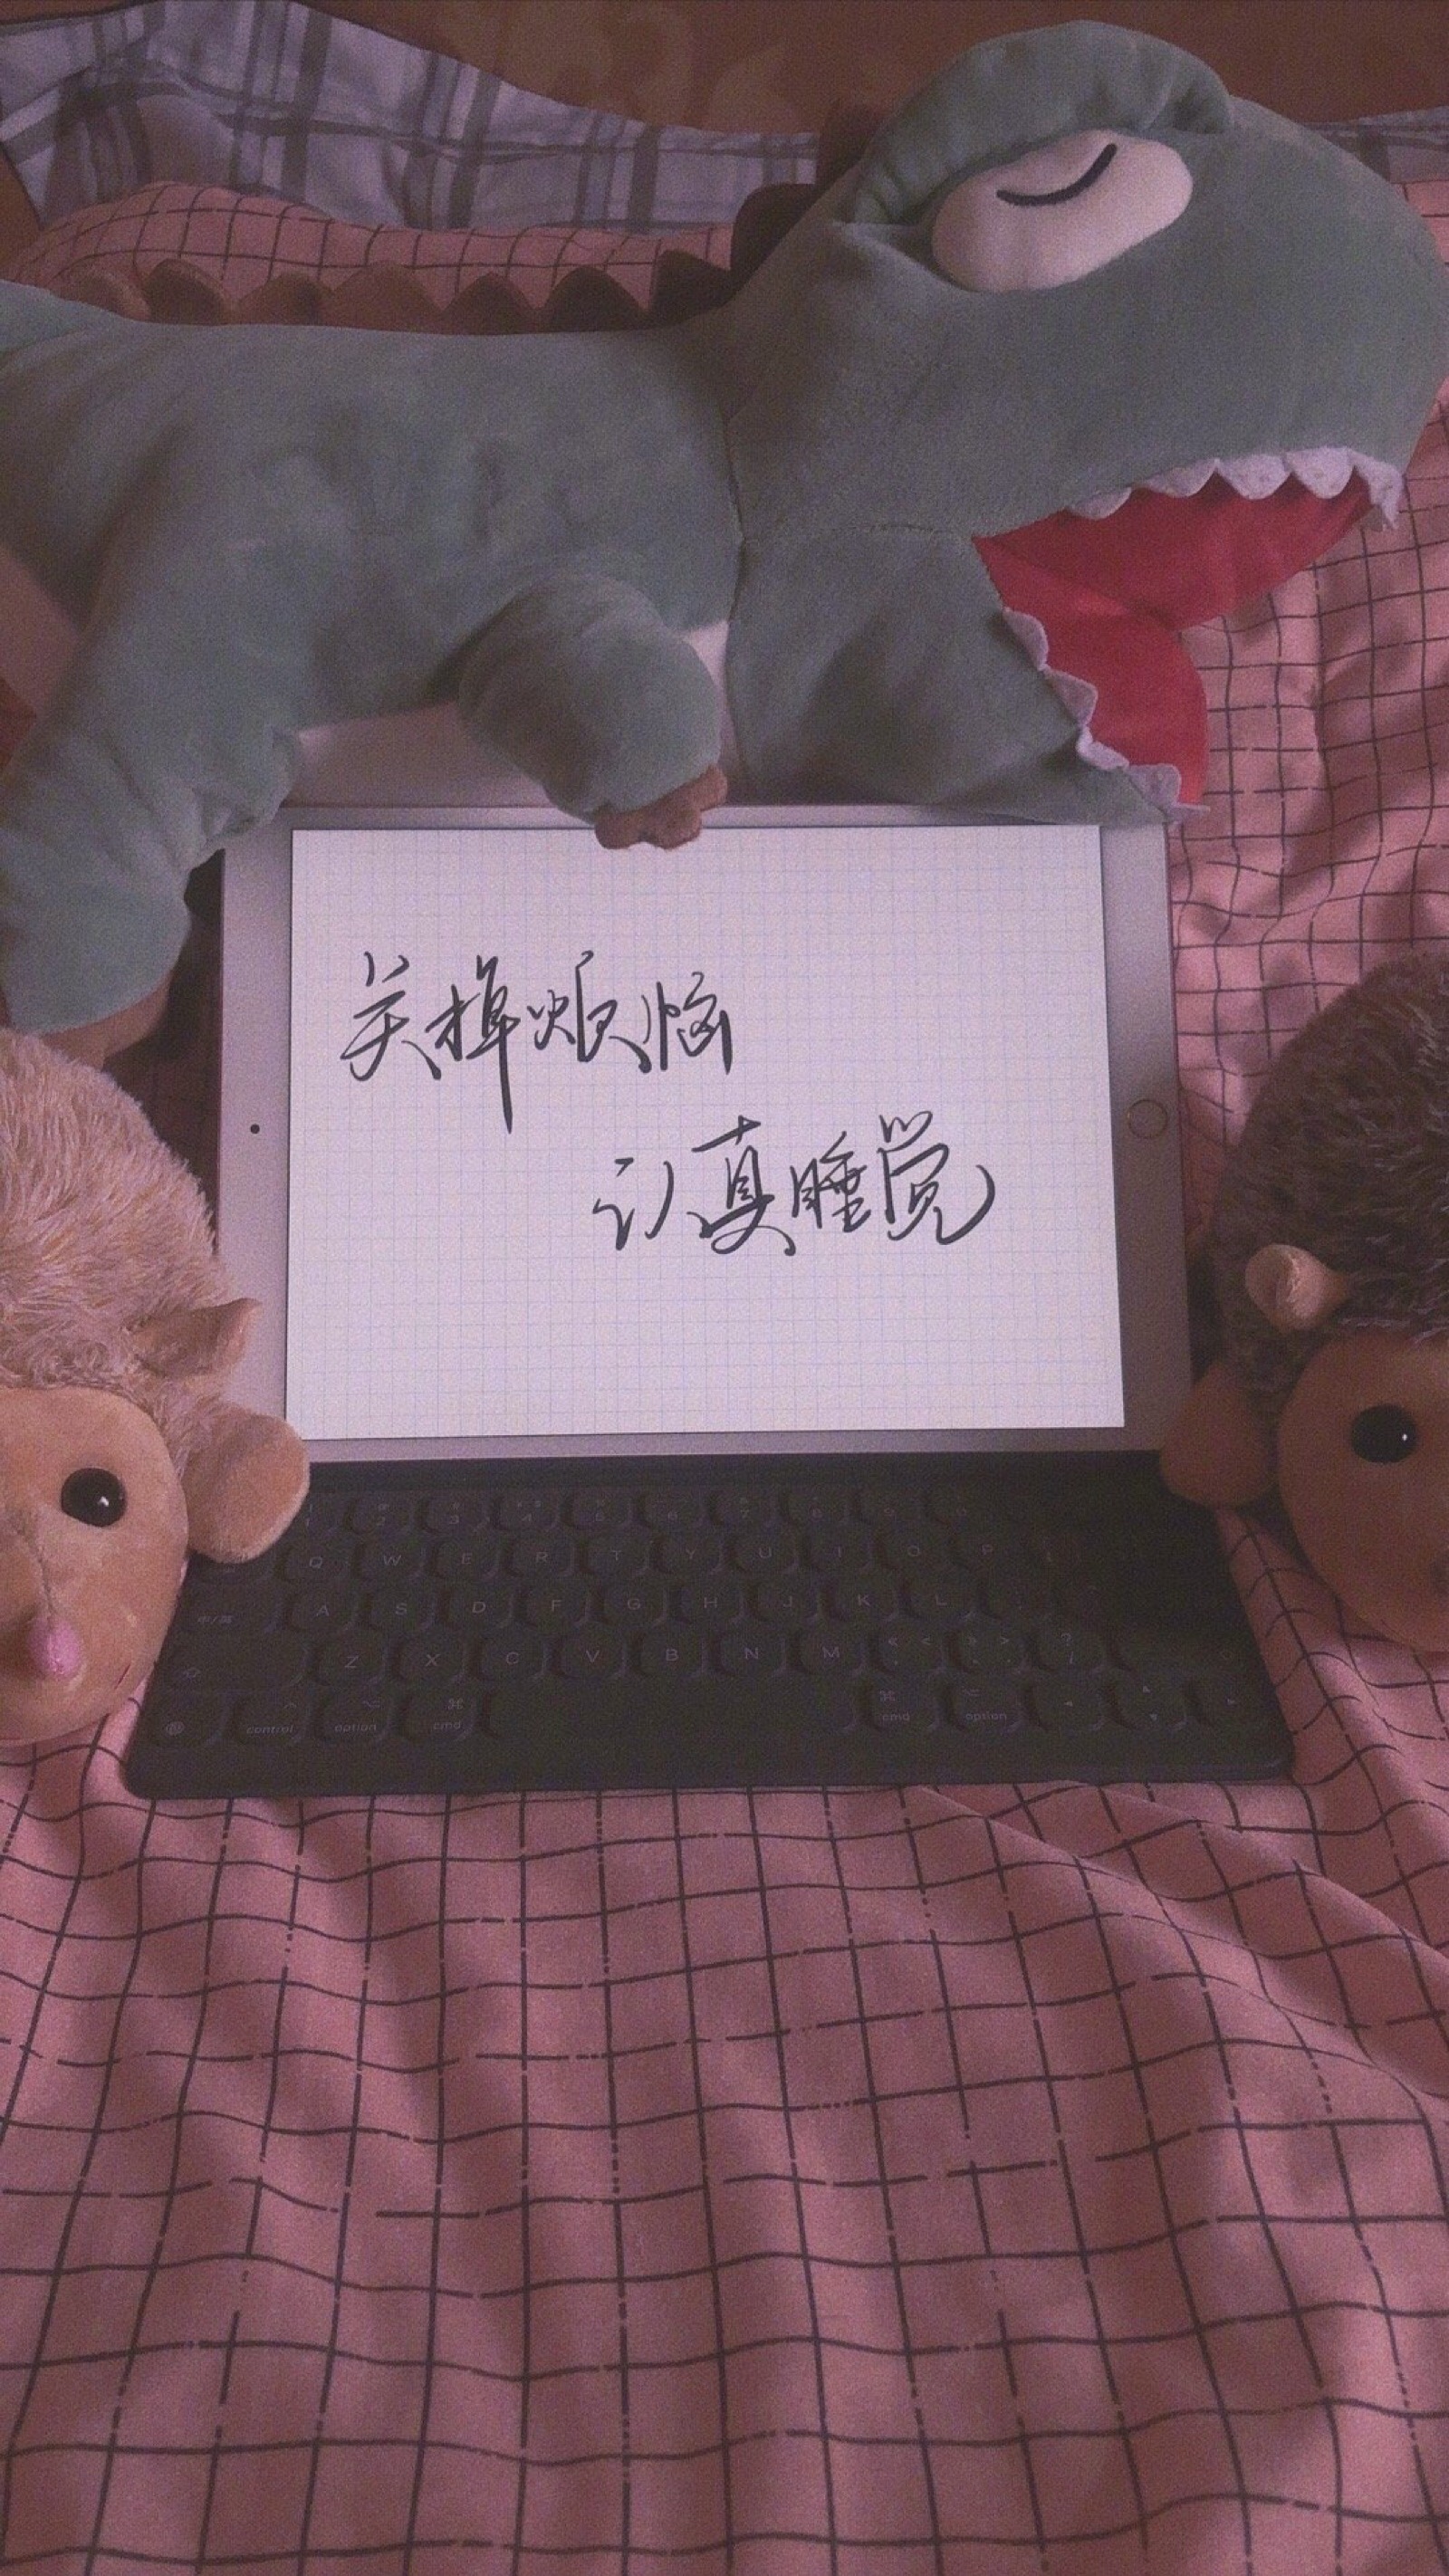 关掉烦恼
认真睡觉
Q W E R T Y U I O P
A S D F G H J K L
Z X C V B N M
control option cmd cmd option